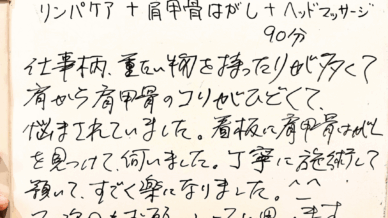 リンパケア + 肩甲骨はがし + ヘッドマッサージ
90分
仕事柄、重たい物を持ったりが多くて
肩から肩甲骨のコリがひどくて、
悩まされていました。看板に肩甲骨はがし
を見つけて、伺いました。丁寧に施術して
頂いて、すごく楽になりました。^_^